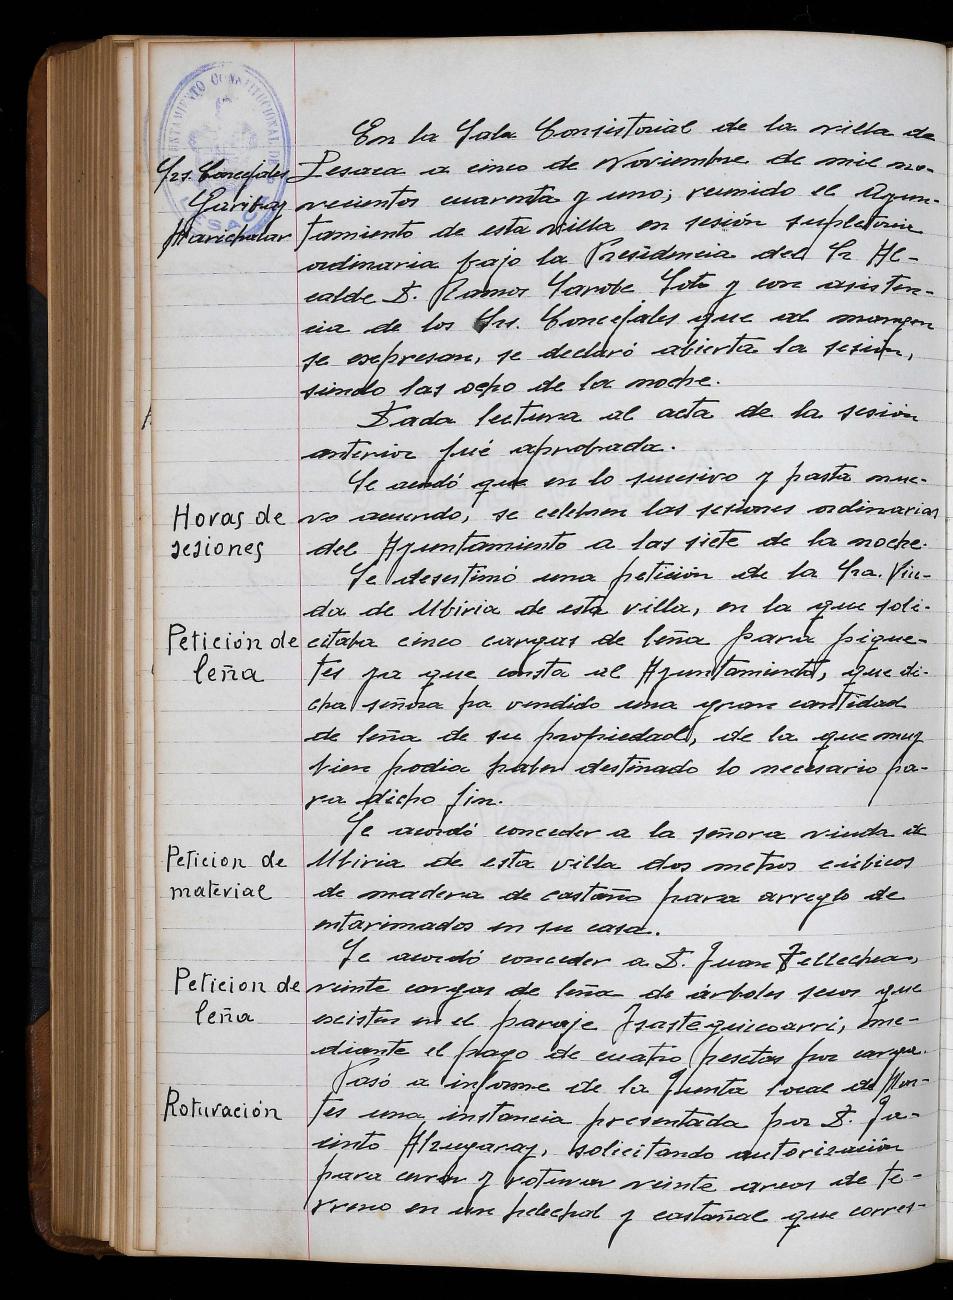 AYUNTAMIENTO CONSTITUCIONAL DE
LESACA
Srs. Concejales
Garibay
Marichalar
En la Sala Consistorial de la villa de
Lesaca a cinco de Noviembre de mil no-
vecientos cuarenta y uno; reunido el Ayun-
tamiento de esta villa en sesión supletoria
ordinaria bajo la Presidencia del Sr Al-
calde D. Ramos Sarobe Soto y con asisten-
cia de los Srs. Concejales que al margen
se expresan, se declaró abierta la sesión,
siendo las ocho de la noche.
Dada lectura al acta de la sesión
anterior fué aprobada.
Horas de
sesiones
Se acordó que en lo sucesivo y hasta nue-
vo acuerdo, se celebren las sesiones ordinarias
del Ayuntamiento a las siete de la noche.
Petición de
leña
Se desestimó una petición de la Sra. Viu-
da de Ubiria de esta villa, en la que soli-
citaba cinco cargas de leña para pique-
tes ya que consta al Ayuntamiento, que di-
cha señora ha vendido una gran cantidad
de leña de su propiedad, de la que muy
bien podia haber destinado lo necesario pa-
ra dicho fin.
Peticion de
material
Se acordó conceder a la señora viuda de
Ubiria de esta villa dos metros cúbicos
de madera de castaño para arreglo de
entarimados en su casa.
Peticion de
leña
Se acordó conceder a D. Juan Tellechea,
veinte cargas de leña de árboles secos que
existen en el paraje Isasteguicoarri, me-
diante el pago de cuatro pesetas por carga.
Roturación
Pasó a informe de la Junta local de Mon-
tes una instancia presentada por D. Ja-
cinto Alzugaray, solicitando autorización
para cerrar y roturar veinte areas de te-
rreno en un helechal y castañal que corres-